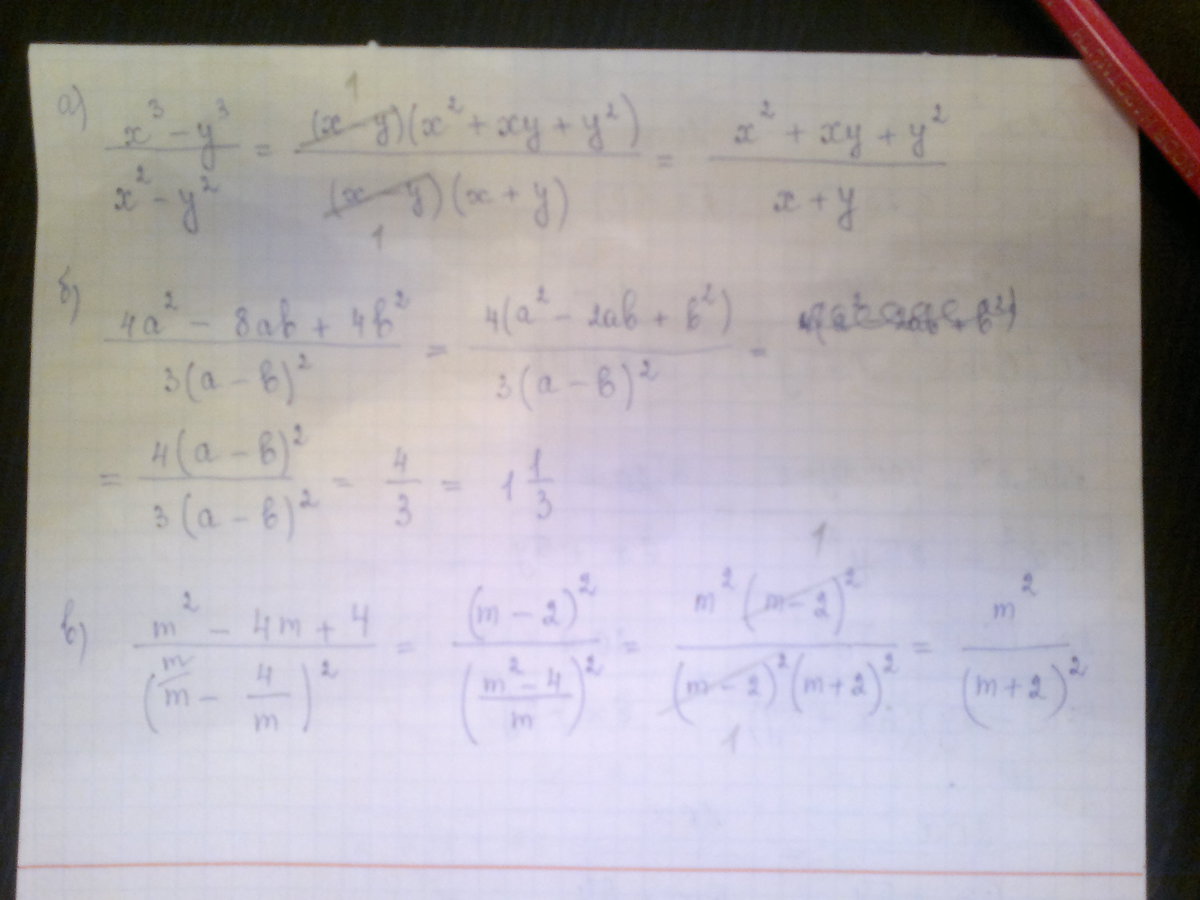 а) x³ − y³ / x² − y² = (x − y)(x² + xy + y²) / (x − y)(x + y) = x² + xy + y² / x + y
б) 4a² − 8ab + 4b² / 3(a − b)² = 4(a² − 2ab + b²) / 3(a − b)² =
= 4(a − b)² / 3(a − b)² = 4/3 = 1 1/3
в) m² − 4m + 4 / (m − 4/m)² = (m − 2)² / ((m² − 4)/m)² = m²(m − 2)² / (m − 2)²(m + 2)² = m² / (m + 2)²